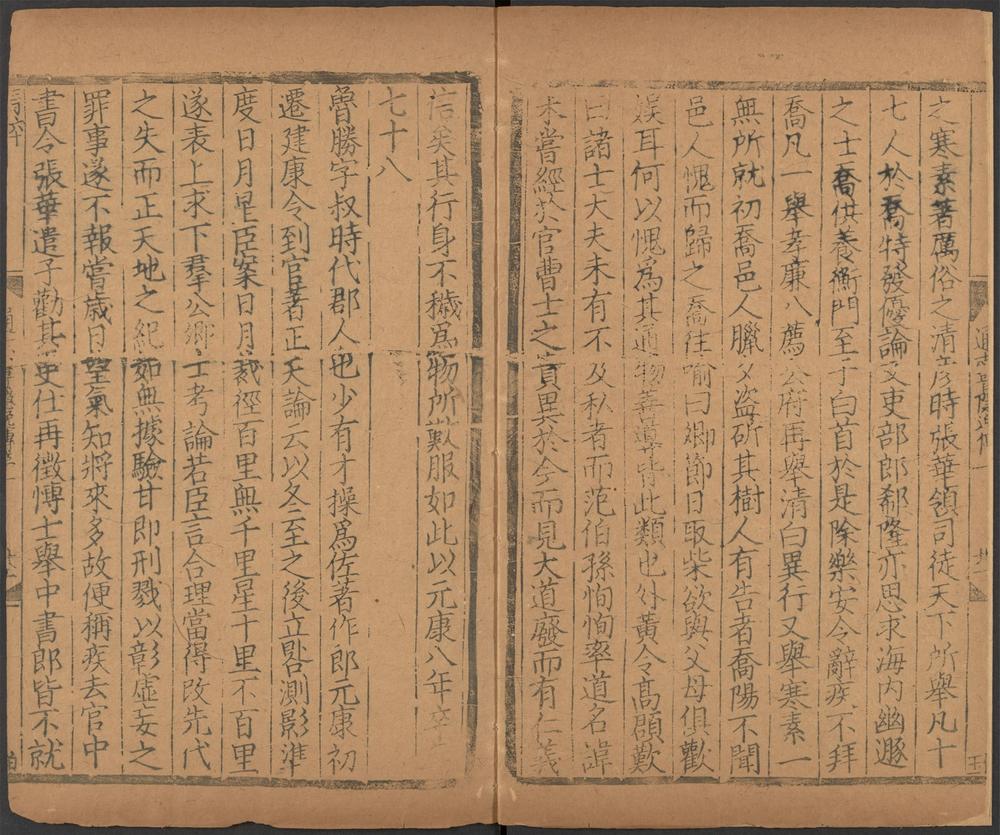 之寒素著厲俗之清彦時張華領司徒天下所舉凡十
七人於喬特發優論又吏部郎郗隆亦思求海内幽遯
之士喬供養衡門至于白首於是除樂安令辭疾不拜
喬凡一舉孝廉八薦公府再舉清白異行又舉寒素一
無所就初喬邑人臘夕盗斫其樹人有告者喬陽不聞
邑人愧而歸之喬往喻曰卿節日取柴欲與父母俱歡
娱耳何以愧爲其通物善導皆此類也外黄令高頵歎
曰諸士大夫未有不及私者而范伯孫恂恂率道名諱
未嘗經於官曹士之貴異於今而見大道廢而有仁義
信矣其行身不穢爲物所歎服如此以元康八年卒
七十八
魯勝字叔時代郡人也少有才操爲佐著作郎元康初
遷建康令到官著正天論云以冬至之後立晷測影準
度日月星臣案日月裁徑百里無千里星十里不百里
遂表上求下羣公卿士考論若臣言合理當得改先代
之失而正天地之紀如無據驗甘即刑戮以彰虚妄之
罪事遂不報嘗歳日望氣知將來多故便稱疾去官中
書令張華遣子勸其更仕再徵博士舉中書郎皆不就